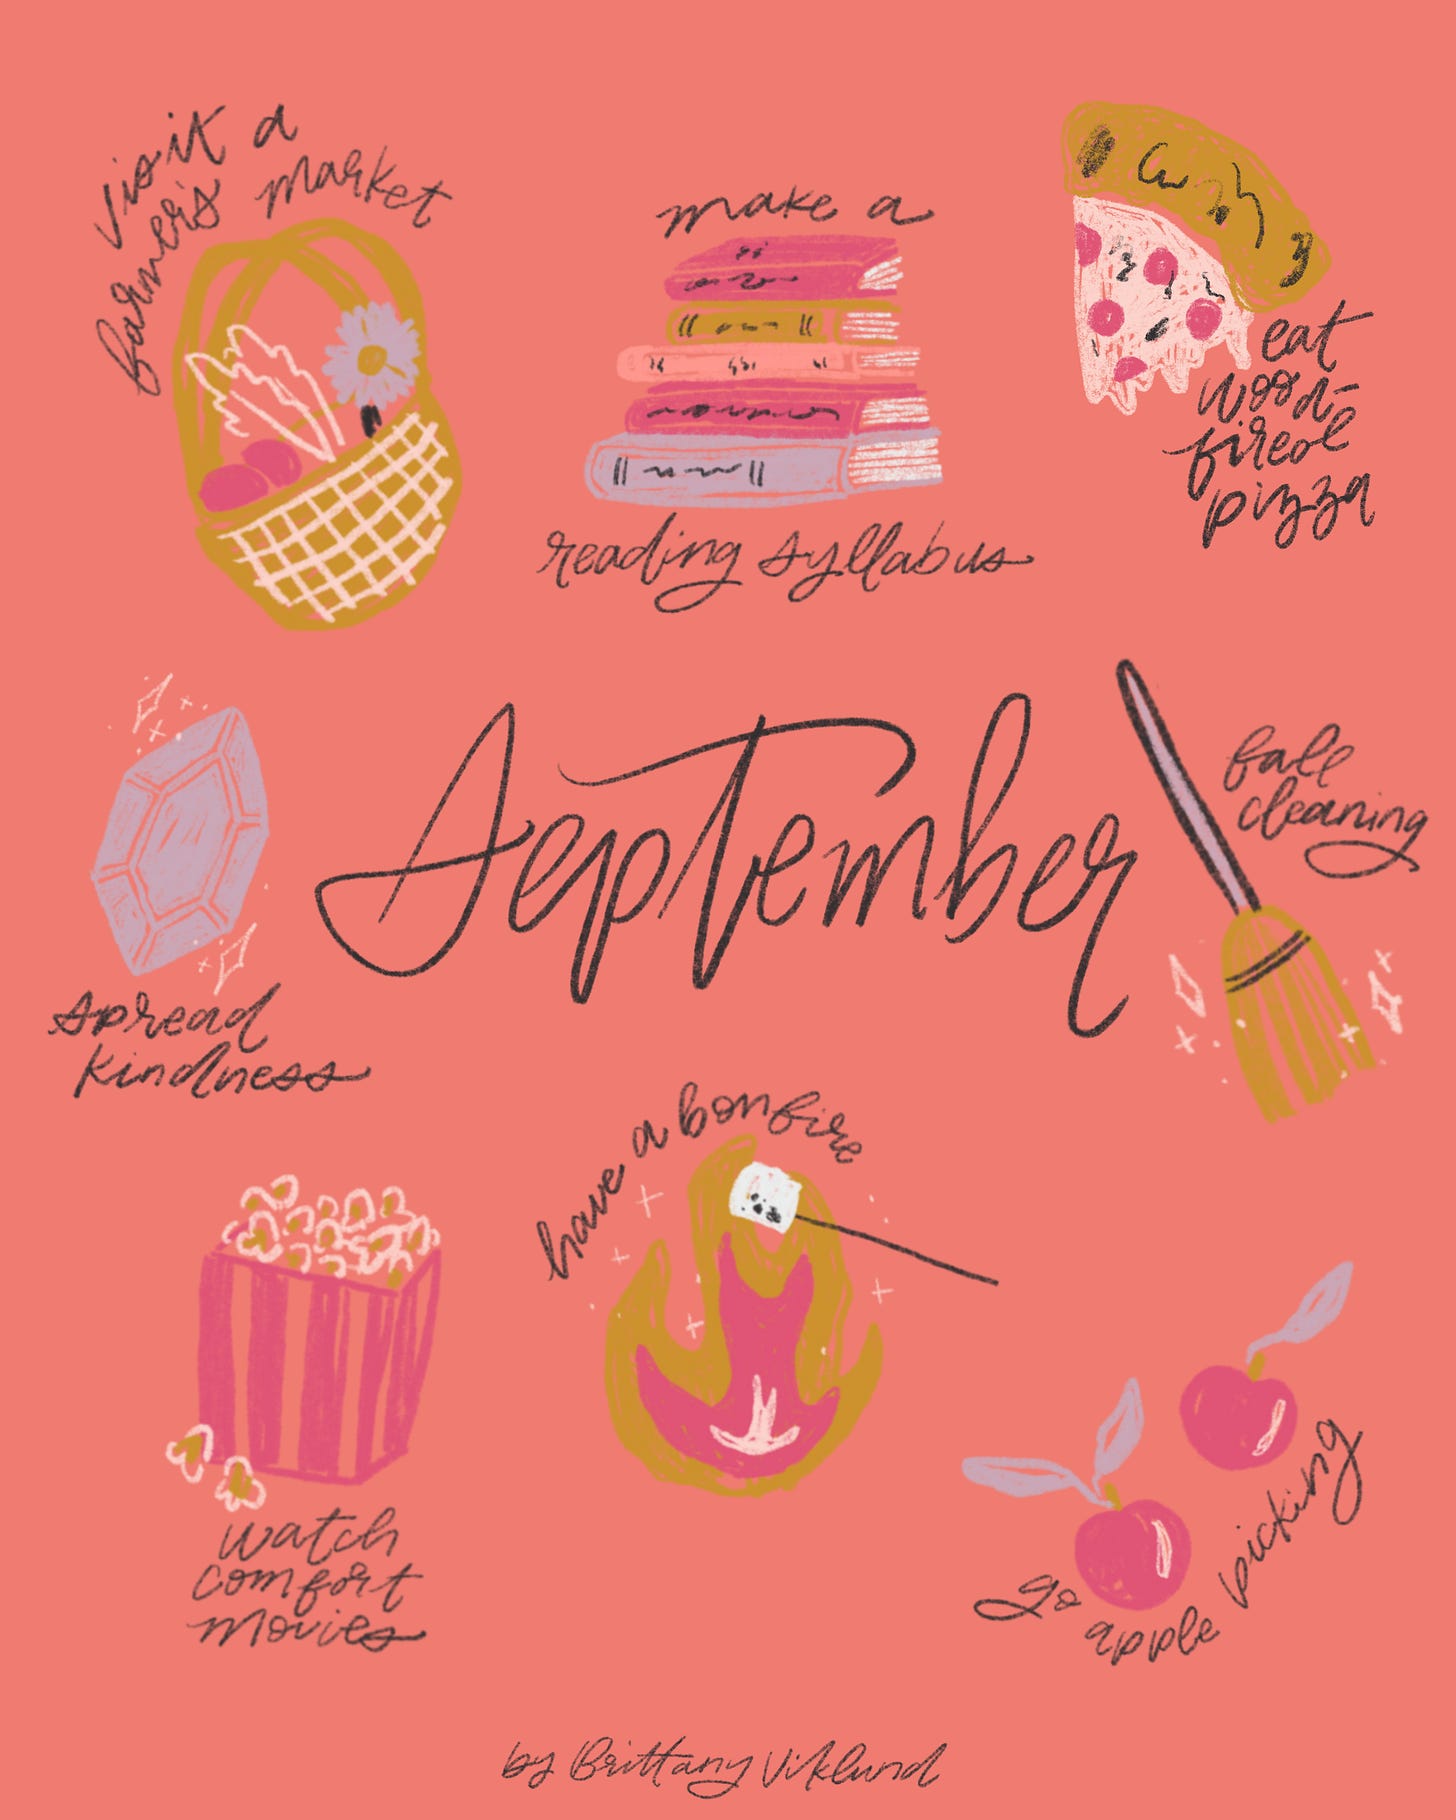 visit a
farmer's market
make a
reading syllabus
eat
wood-
fired
pizza
September
spread
kindness
fall
cleaning
have a bonfire
watch
comfort
movies
go apple picking
by Brittany Viklund